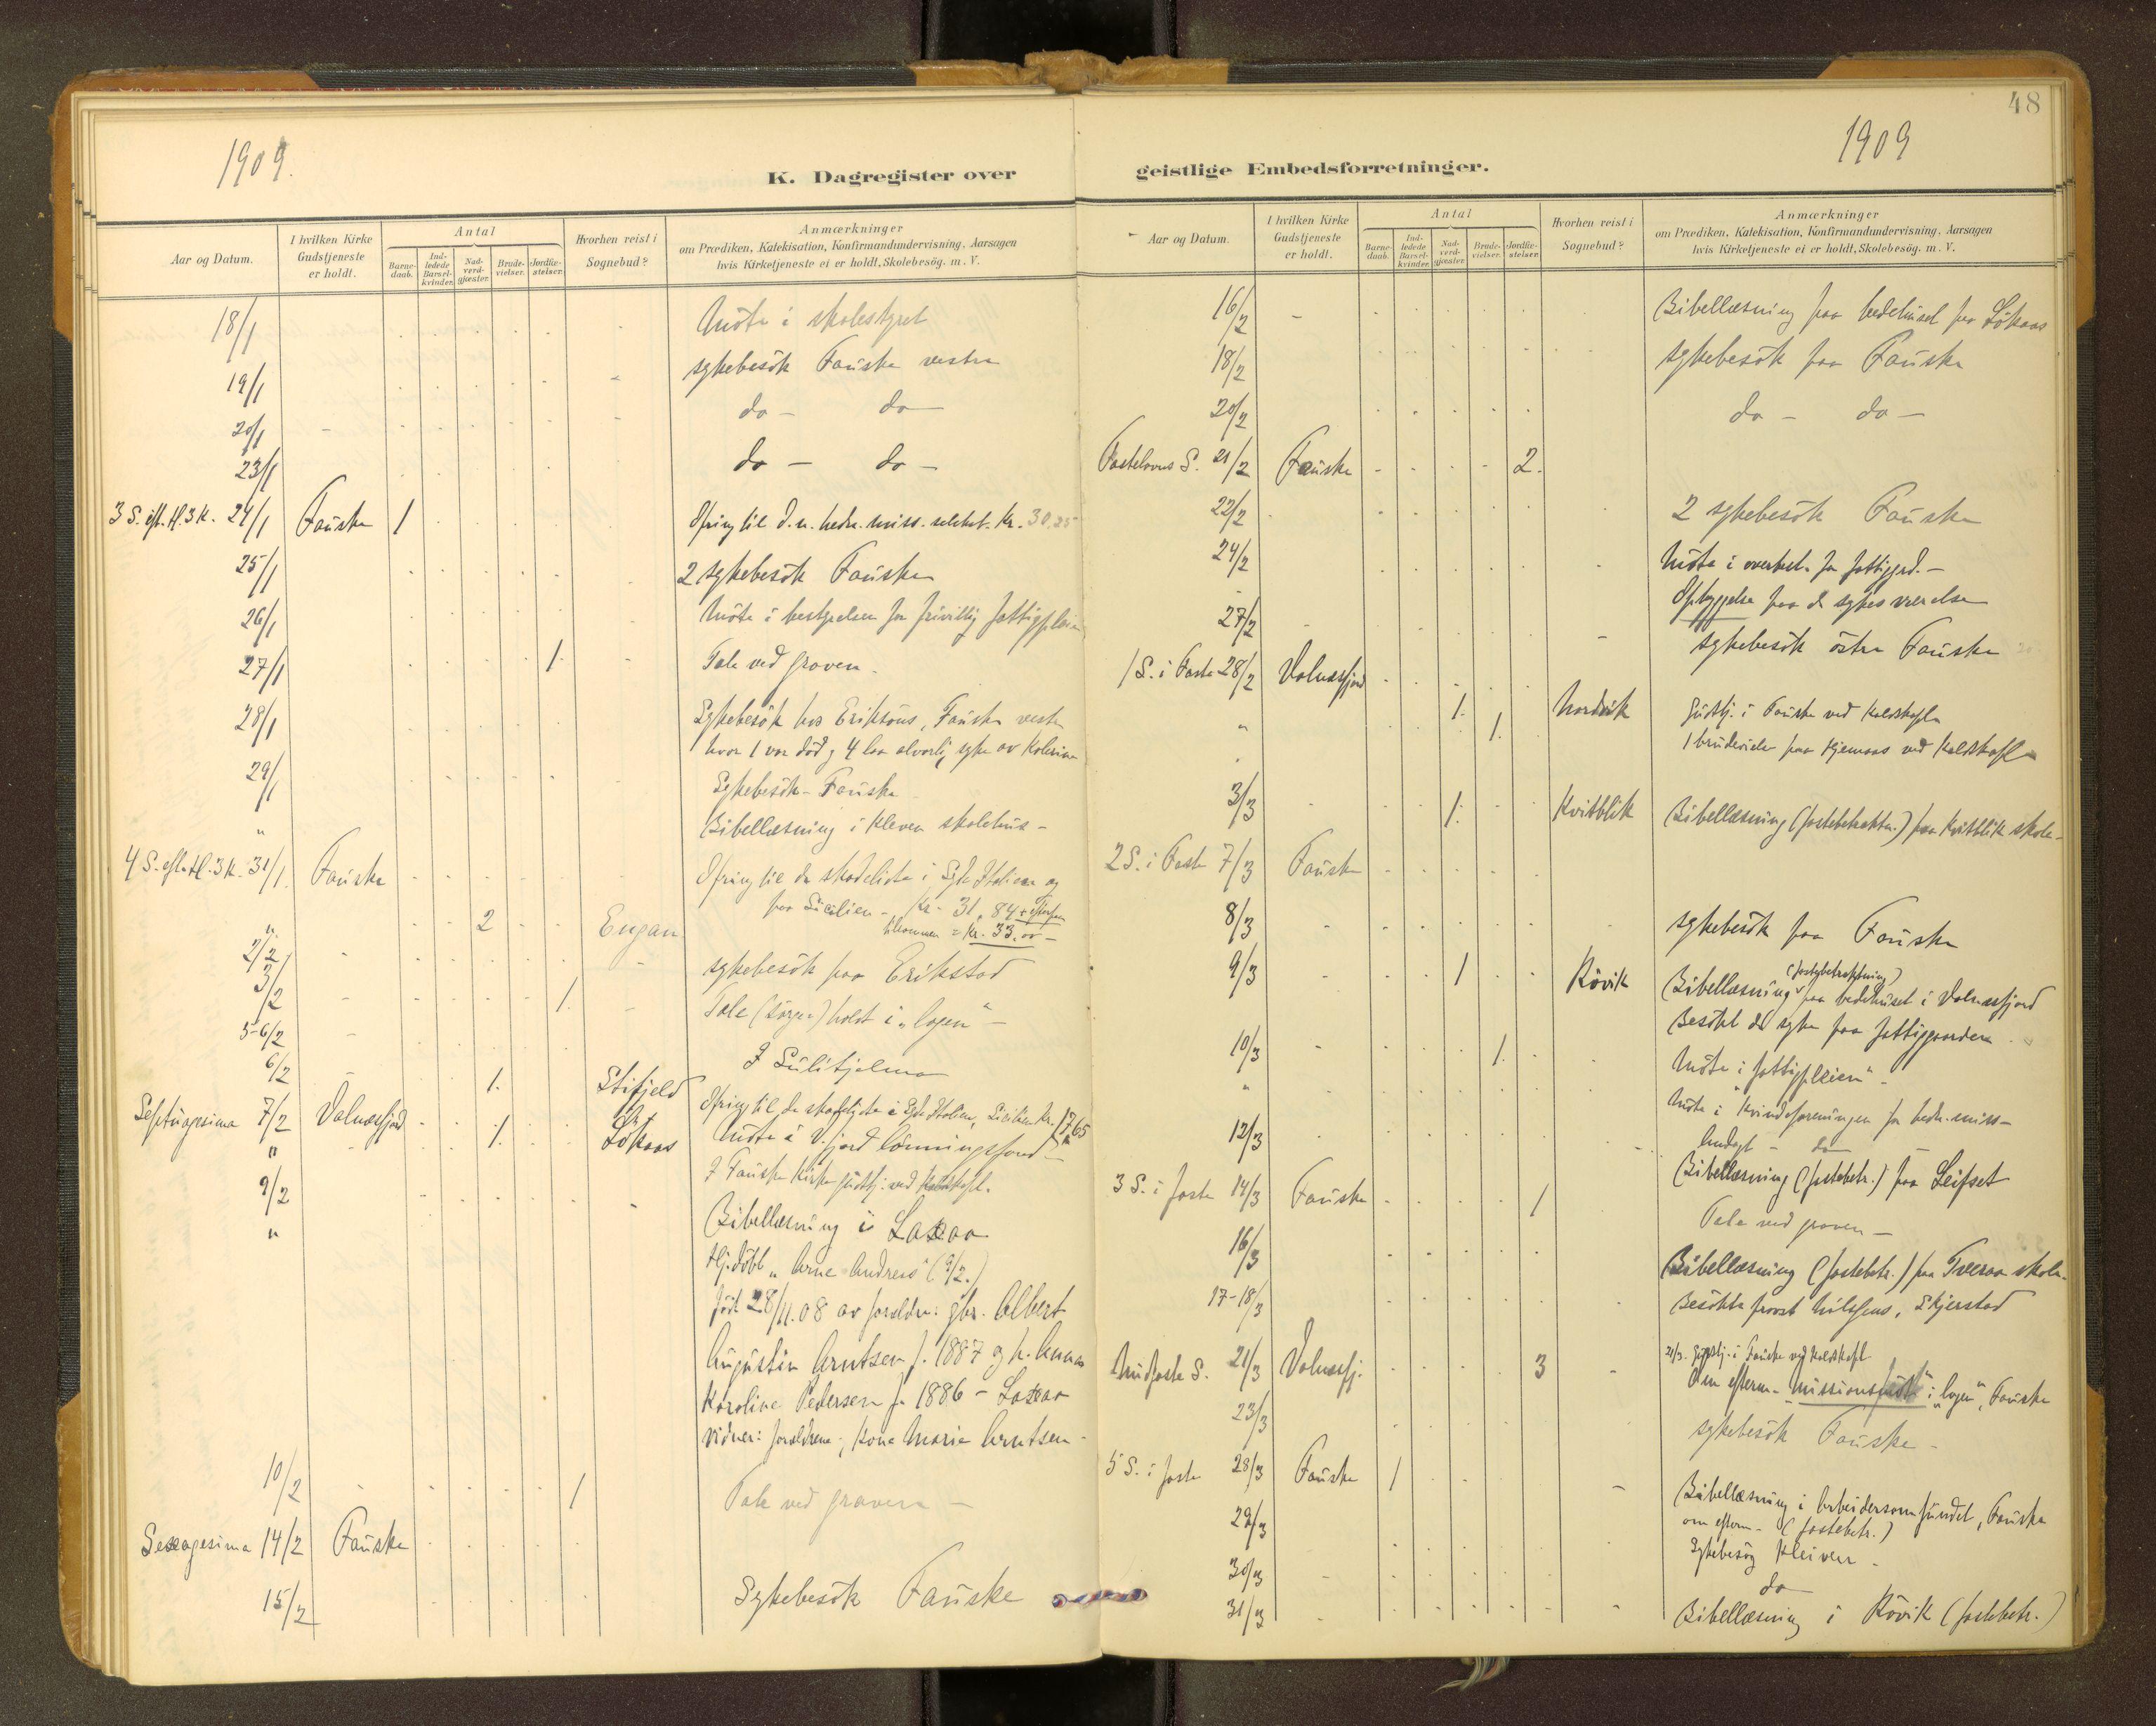 1909.
K. Dagregister over
Aar og Datum.
I hvilken Kirke Gudstjeneste er holdt.
Antal
Barne-daab.
Ind-ledede Barsel-kvinder.
Nad-verd-gjæster.
Brude-vielser.
Jordfæ-stelser.
Hvorhen reist i Sognebud?
Anmærkninger
om Prædiken, Katekisation, Konfirmandundervisning, Aarsagen
hvis Kirketjeneste ei er holdt, Skolebesög. m. V.
18/1 Möte i skolestyret
19/1 sykebesök Fauske vestre
20/1 - do - do -
23/1 do - do -
3 S. eft. H.3K. 24/1 Fauske 1 Ofring til d. n. hedn. miss. selskab. Kr. 30,25
25/1 2 sykebesök Fauske
26/1 Möte i bestyrelsen for frivillig fattigpleie
27/1 1. Tale ved graven.
28/1 Sykebesök hos Eriksens, Fauske vestre
hvor 1 var död og 4 laa alvorlig syke av Kolerine
29/1 Sykebesök - Fauske
" Bibellæsning i Kleven skolehus -
4 S. eft. H.3K. 31/1. Fauske Ofring til de skadelidte i Syd Italien og
paa Sicilien - Kr. 31,84 +
" 2 Engan = Kr. 33.00 -
2/2 sykebesök paa Erikstad
3/2 1. Tale (sorger) holdt i "logen" -
5-6/2 I Sulitjelma
6/2 1. Stifjeld
Septuagesima 7/2 Valnesfjord 1. Lökaas Ofring til de skadelidte i Syd Italien, Sicilien Kr. 17,65
" Möte i V.fjord lönningsfond -
I Fauske Kirke gudstj. ved
9/2 Bibellæsning i Laxaa
" Hj.döbt "Arne Andreas" (9/2.)
födt 28/11.08 av foreldre: gbr. Albert
Augustin Arntsen f. 1887 og h. Anna
Karoline Pedersen f. 1886 - Laxaa
vidner: forældrene, Kona Maria Arntsen -
10/2 1 Tale ved graven -
Sexagesima 14/2 Fauske
15/2 Sykebesök Fauske
48
1909
geistlige Embedsforretninger.
Aar og Datum.
I hvilken Kirke Gudstjeneste er holdt.
Antal
Barne-daab.
Ind-ledede Barsel-kvinder.
Nad-verd-gjæster.
Brude-vielser.
Jordfæ-stelser.
Hvorhen reist i Sognebud?
Anmærkninger
om Prædiken, Katekisation, Konfirmandundervisning, Aarsagen
hvis Kirketjeneste ei er holdt, Skolebesög. m. V.
16/2 - Bibellæsning paa bedehuset paa Lökaas
18/2 sykebesök paa Fauske
20/2 do - do -
Fastelavns S. 21/2 Fauske 2.
22/2 2 sykebesök Fauske
24/2 Möte i for fattiggrd. -
Opbyggelse paa de sykes værelse
27/2 sykebesök östre Fauske
1 S. i Faste 28/2 Valnesfjord 1. Nordvik Gudstj. i Fauske ved
" 1. 1 brudevielse paa Kjemaas ved
3/3 1. Kvitblik Bibellæsning (fastebetraktn.) paa Kvitblik skole -
2 S. i Faste 7/3 Fauske
8/3 sykebesök paa Fauske
9/3 1 Rövik Bibellæsning (fastebetragtning) paa bedehuset i Valnesfjord
Besökt de syke paa fattiggaarden
10/3 1. Möte i "fattigpleien" -
" Möte i Kvindeforeningen for hedn. miss -
Andagt - do
12/3 Bibellæsning (fastebetr.) paa Leifset
3 S. i faste 14/3 Fauske 1 Tale ved graven -
16/3 Bibellæsning (fastebetr.) paa Tveraa skole -
17-18/3 Besökte provst , Skjerstad
21/3. Gudstj. i Fauske ved
Midfaste S. 21/3 Valnesfj. 3 Om efterm. - missionsmöte i "logen", Fauske
23/3 sykebesök Fauske -
5 S. i faste 28/3 Fauske 1 Bibellæsning i Arbeidersamfundet, Fauske
om efterm. - (fastebetr.)
29/3 Sykebesög Kleiven -
30/3 do
31/3 Bibellæsning i Rövik (fastebetr.)